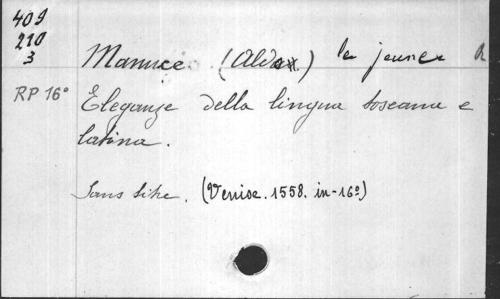 409
210
3
Manuce (Alde) le jeune R
RP 16°
Eleganze della lingua toscana e
latina.
Sans titre. (Venise. 1558. in-16º)